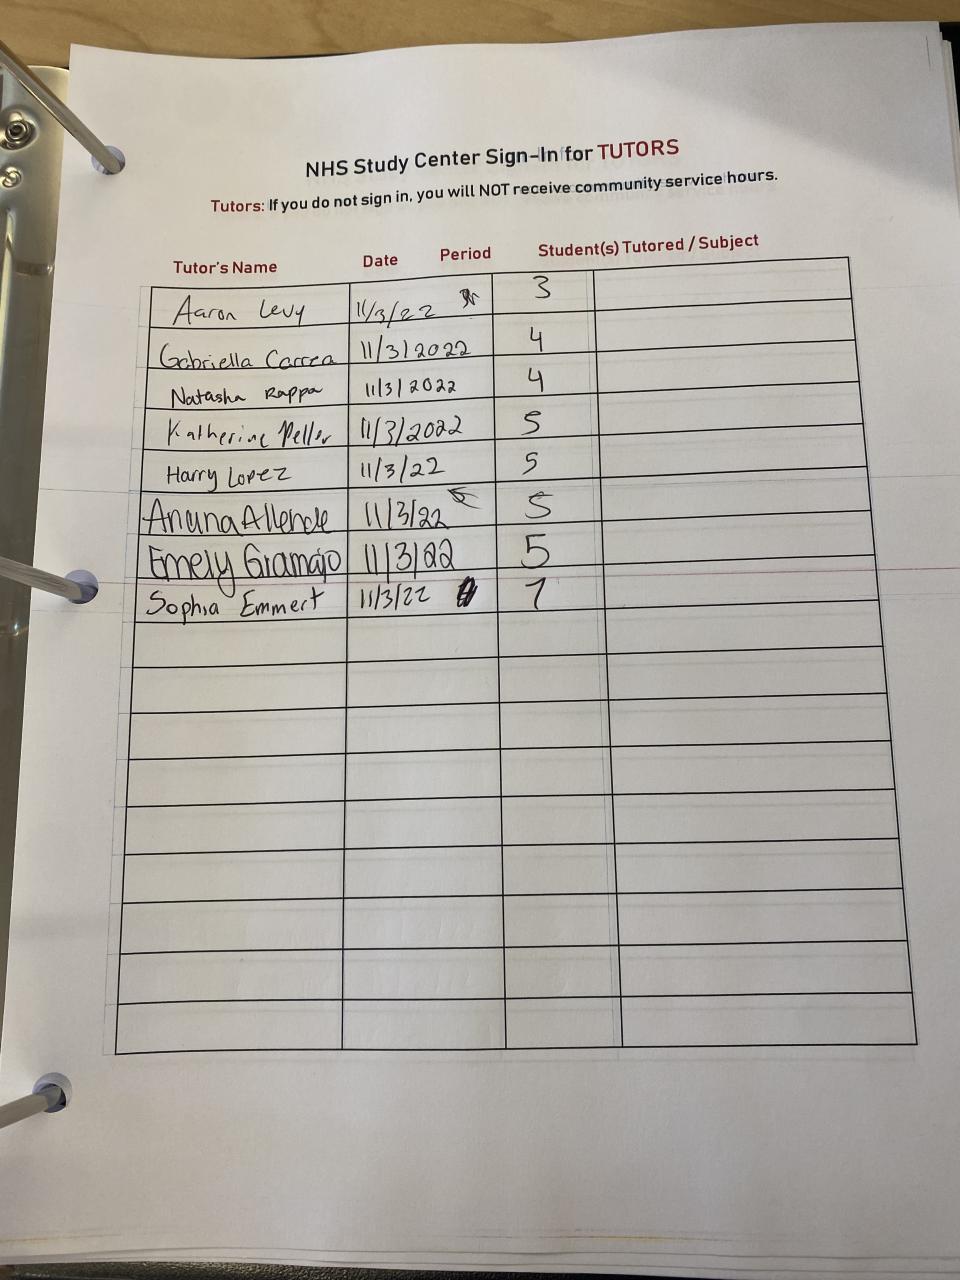 NHS Study Center Sign-In for TUTORS
Tutors: If you do not sign in, you will NOT receive community service hours.
Tutor's Name Date Period Student(s) Tutored / Subject
Aaron Levy 11/3/22 3
Gabriella Correa 11/3/2022 4
Natasha Rappa 11/3/2022 4
Katherine 11/3/2022 5
Harry Lopez 11/3/22 5
Allende 11/3/22 5
Emely Gramajo 11/3/22 5
Sophia Emmert 11/3/22 7